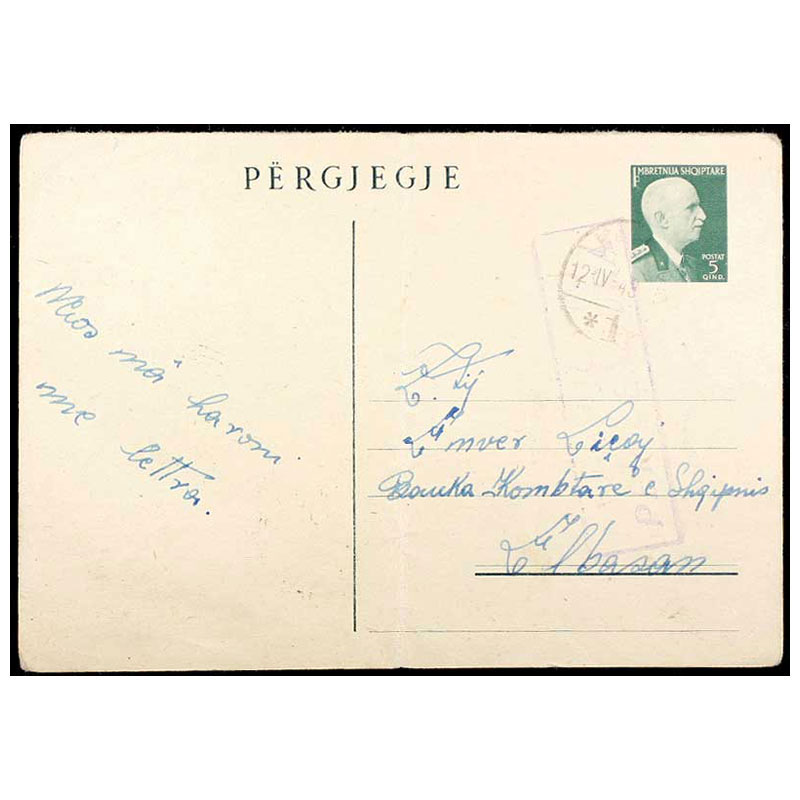 PËRGJEGJE
MBRETNIJA SHQIPTARE
POSTAT
5
QIND.
12 IV 43
*1
Mos më harom
me lettra.
Z. Tij
Enver Liçaj
Banka Kombtare e Shqipnis
Elbasan